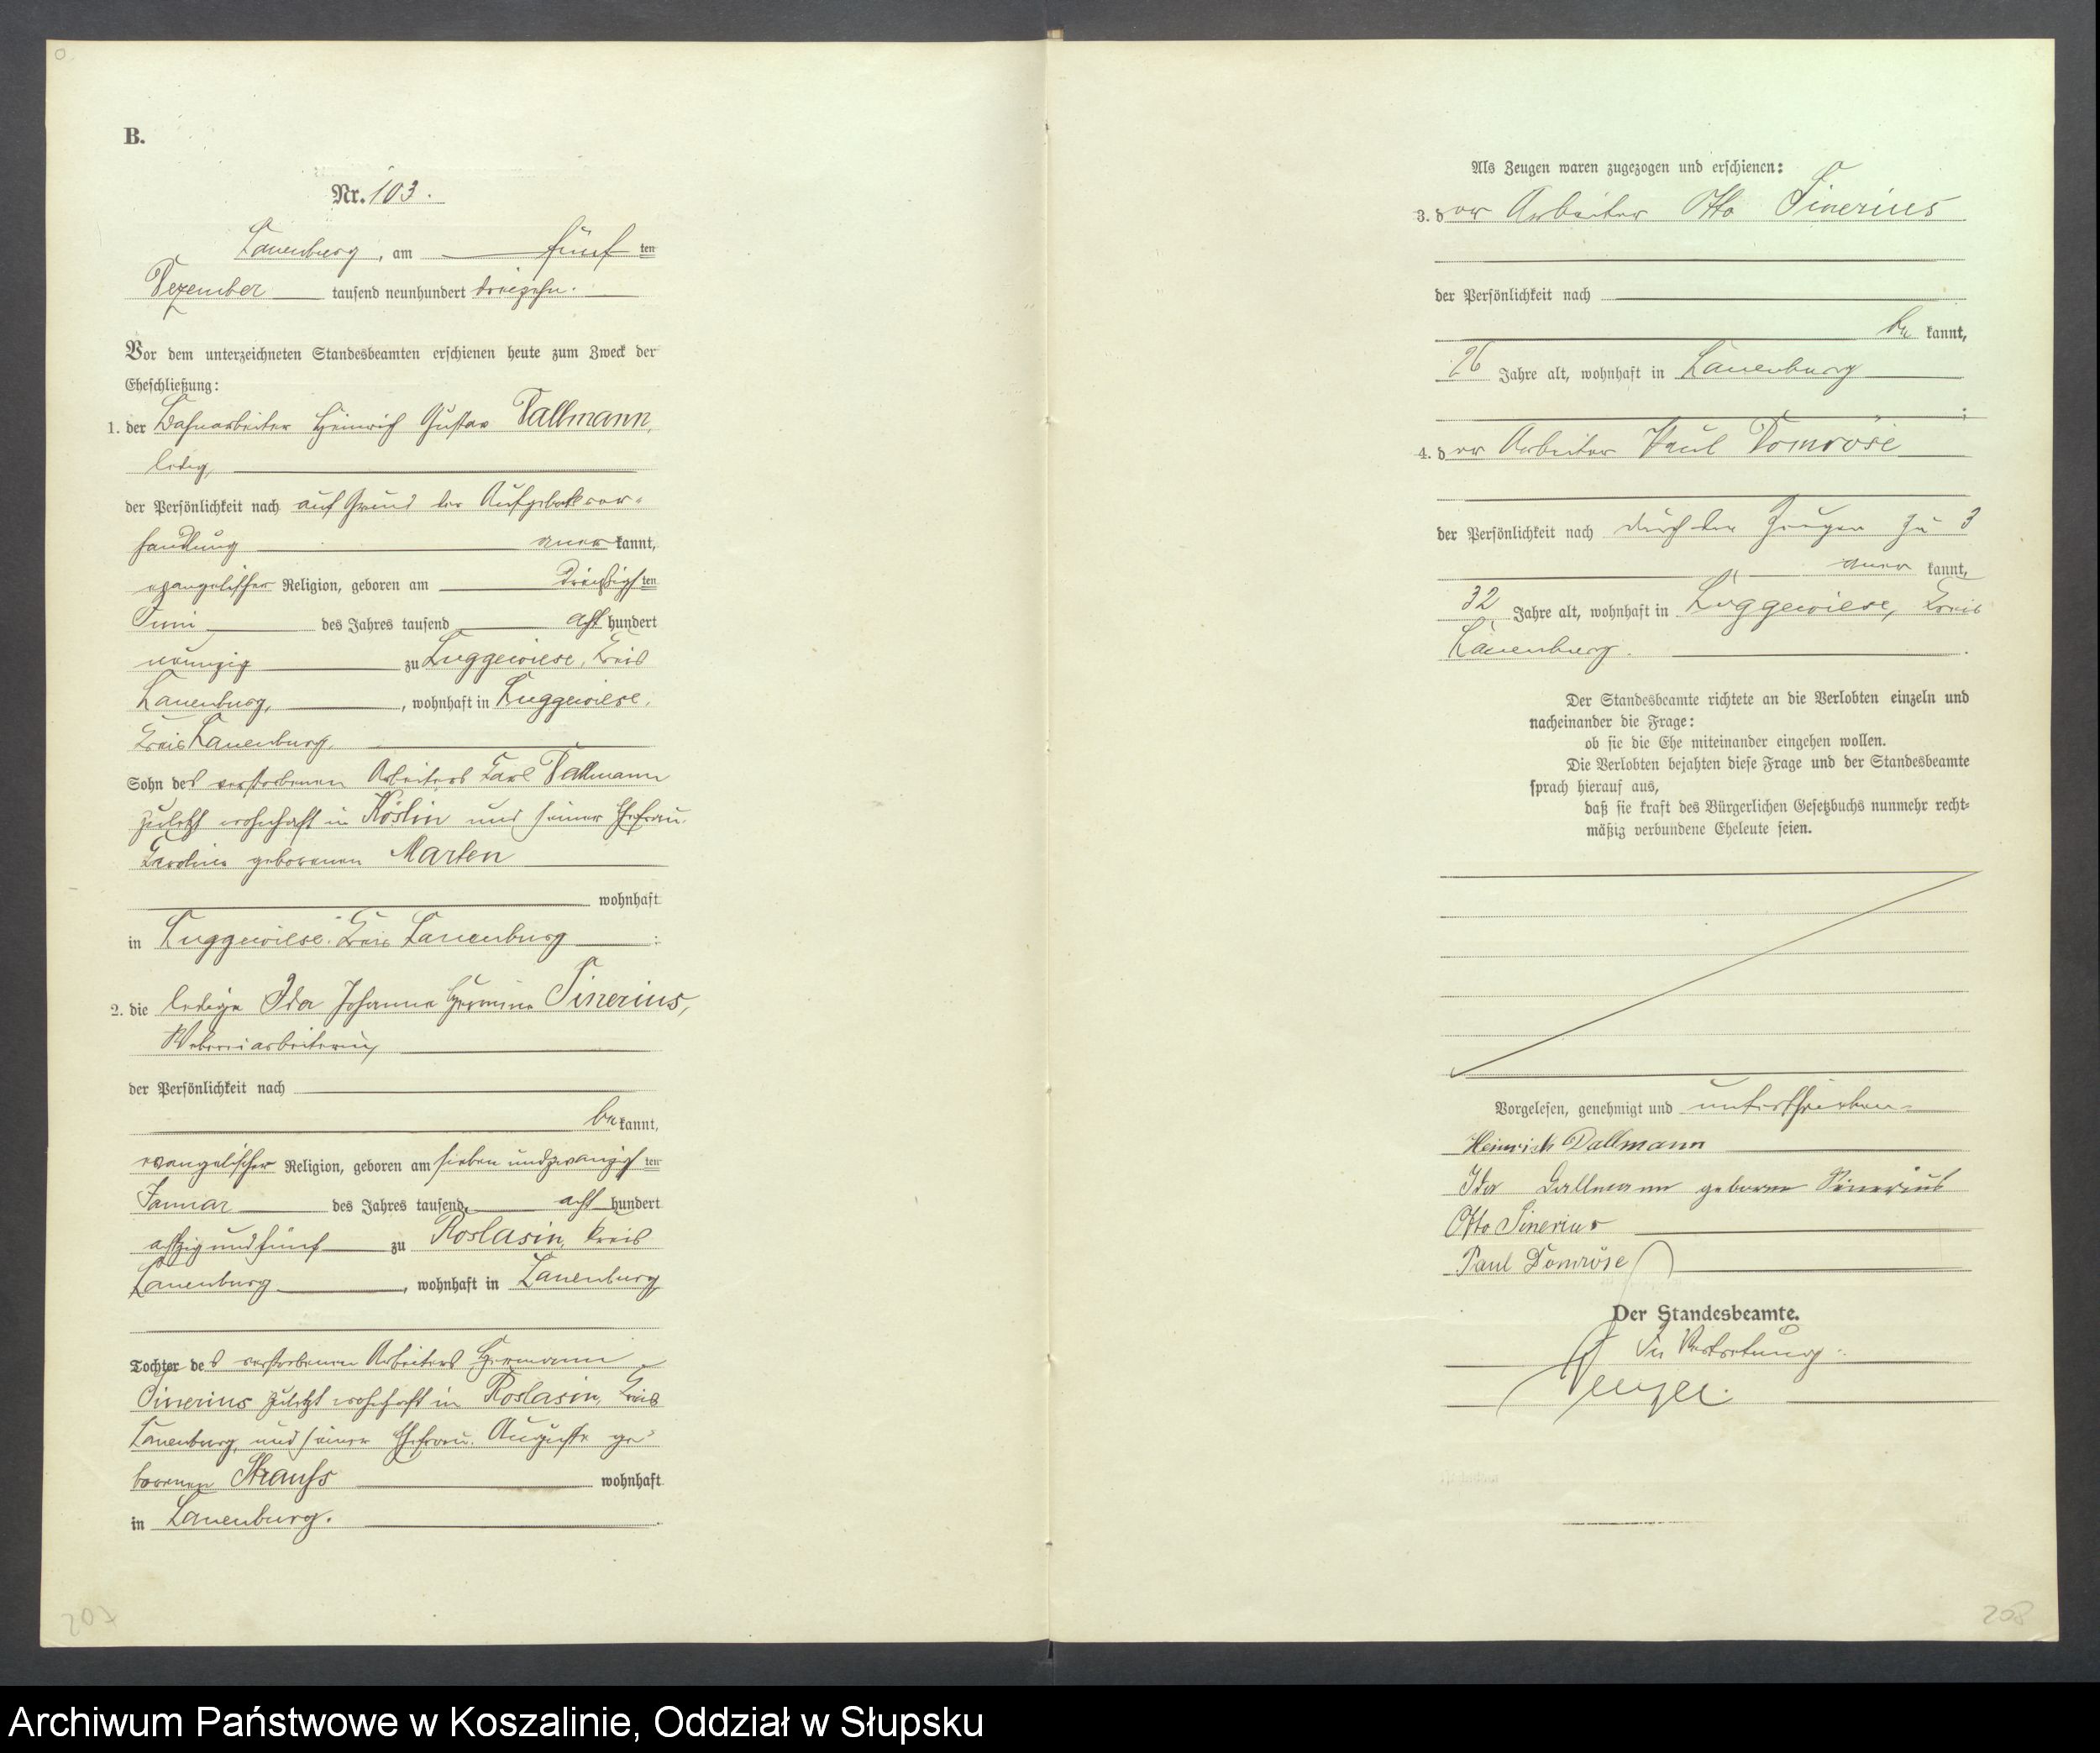 B.
Nr. 103.
Lauenburg, am fünf ten
Dezember tausend neunhundert dreizehn.
Vor dem unterzeichneten Standesbeamten erschienen heute zum Zweck der
Eheschließung:
1. der Bahnarbeiter Heinrich Gustav Dallmann,
ledig,
der Persönlichkeit nach auf Grund der Aufgebotsver-
handlung aner kannt,
evangelischer Religion, geboren am dreißigsten
Juni des Jahres tausend acht hundert
neunzig zu Luggewiese, Kreis
Lauenburg, wohnhaft in Luggewiese,
Kreis Lauenburg,
Sohn des verstorbenen Arbeiters Karl Dallmann
zuletzt wohnhaft in Köslin und seiner Ehefrau
Karoline geborenen Marten
wohnhaft
in Luggewiese Kreis Lauenburg ;
2. die ledige Ida Johanna Hermine Sinerius,
Webereiarbeiterin,
der Persönlichkeit nach
be kannt,
evangelischer Religion, geboren am sieben und zwanzigsten
Januar des Jahres tausend acht hundert
achtzig und fünf zu Roslasin, Kreis
Lauenburg, wohnhaft in Lauenburg
Tochter des verstorbenen Arbeiters Hermann
Sinerius zuletzt wohnhaft in Roslasin, Kreis
Lauenburg, und seiner Ehefrau Auguste ge-
borenen Strauss wohnhaft
in Lauenburg.
207
Als Zeugen waren zugezogen und erschienen:
3. der Arbeiter Otto Sinerius
der Persönlichkeit nach
be kannt,
26 Jahre alt, wohnhaft in Lauenburg
;
4. der Arbeiter Paul Domröse
der Persönlichkeit nach durch den Zeugen zu 3
aner kannt,
32 Jahre alt, wohnhaft in Luggewiese, Kreis
Lauenburg.
Der Standesbeamte richtete an die Verlobten einzeln und
nacheinander die Frage:
ob sie die Ehe miteinander eingehen wollen.
Die Verlobten bejahten diese Frage und der Standesbeamte
sprach hierauf aus,
daß sie kraft des Bürgerlichen Gesetzbuchs nunmehr recht-
mäßig verbundene Eheleute seien.
Vorgelesen, genehmigt und unterschrieben
Heinrich Dallmann
Ida Dallmann geborene Sinerius
Otto Sinerius
Paul Domröse
Der Standesbeamte.
In Vertretung:
208
Archiwum Państwowe w Koszalinie, Oddział w Słupsku